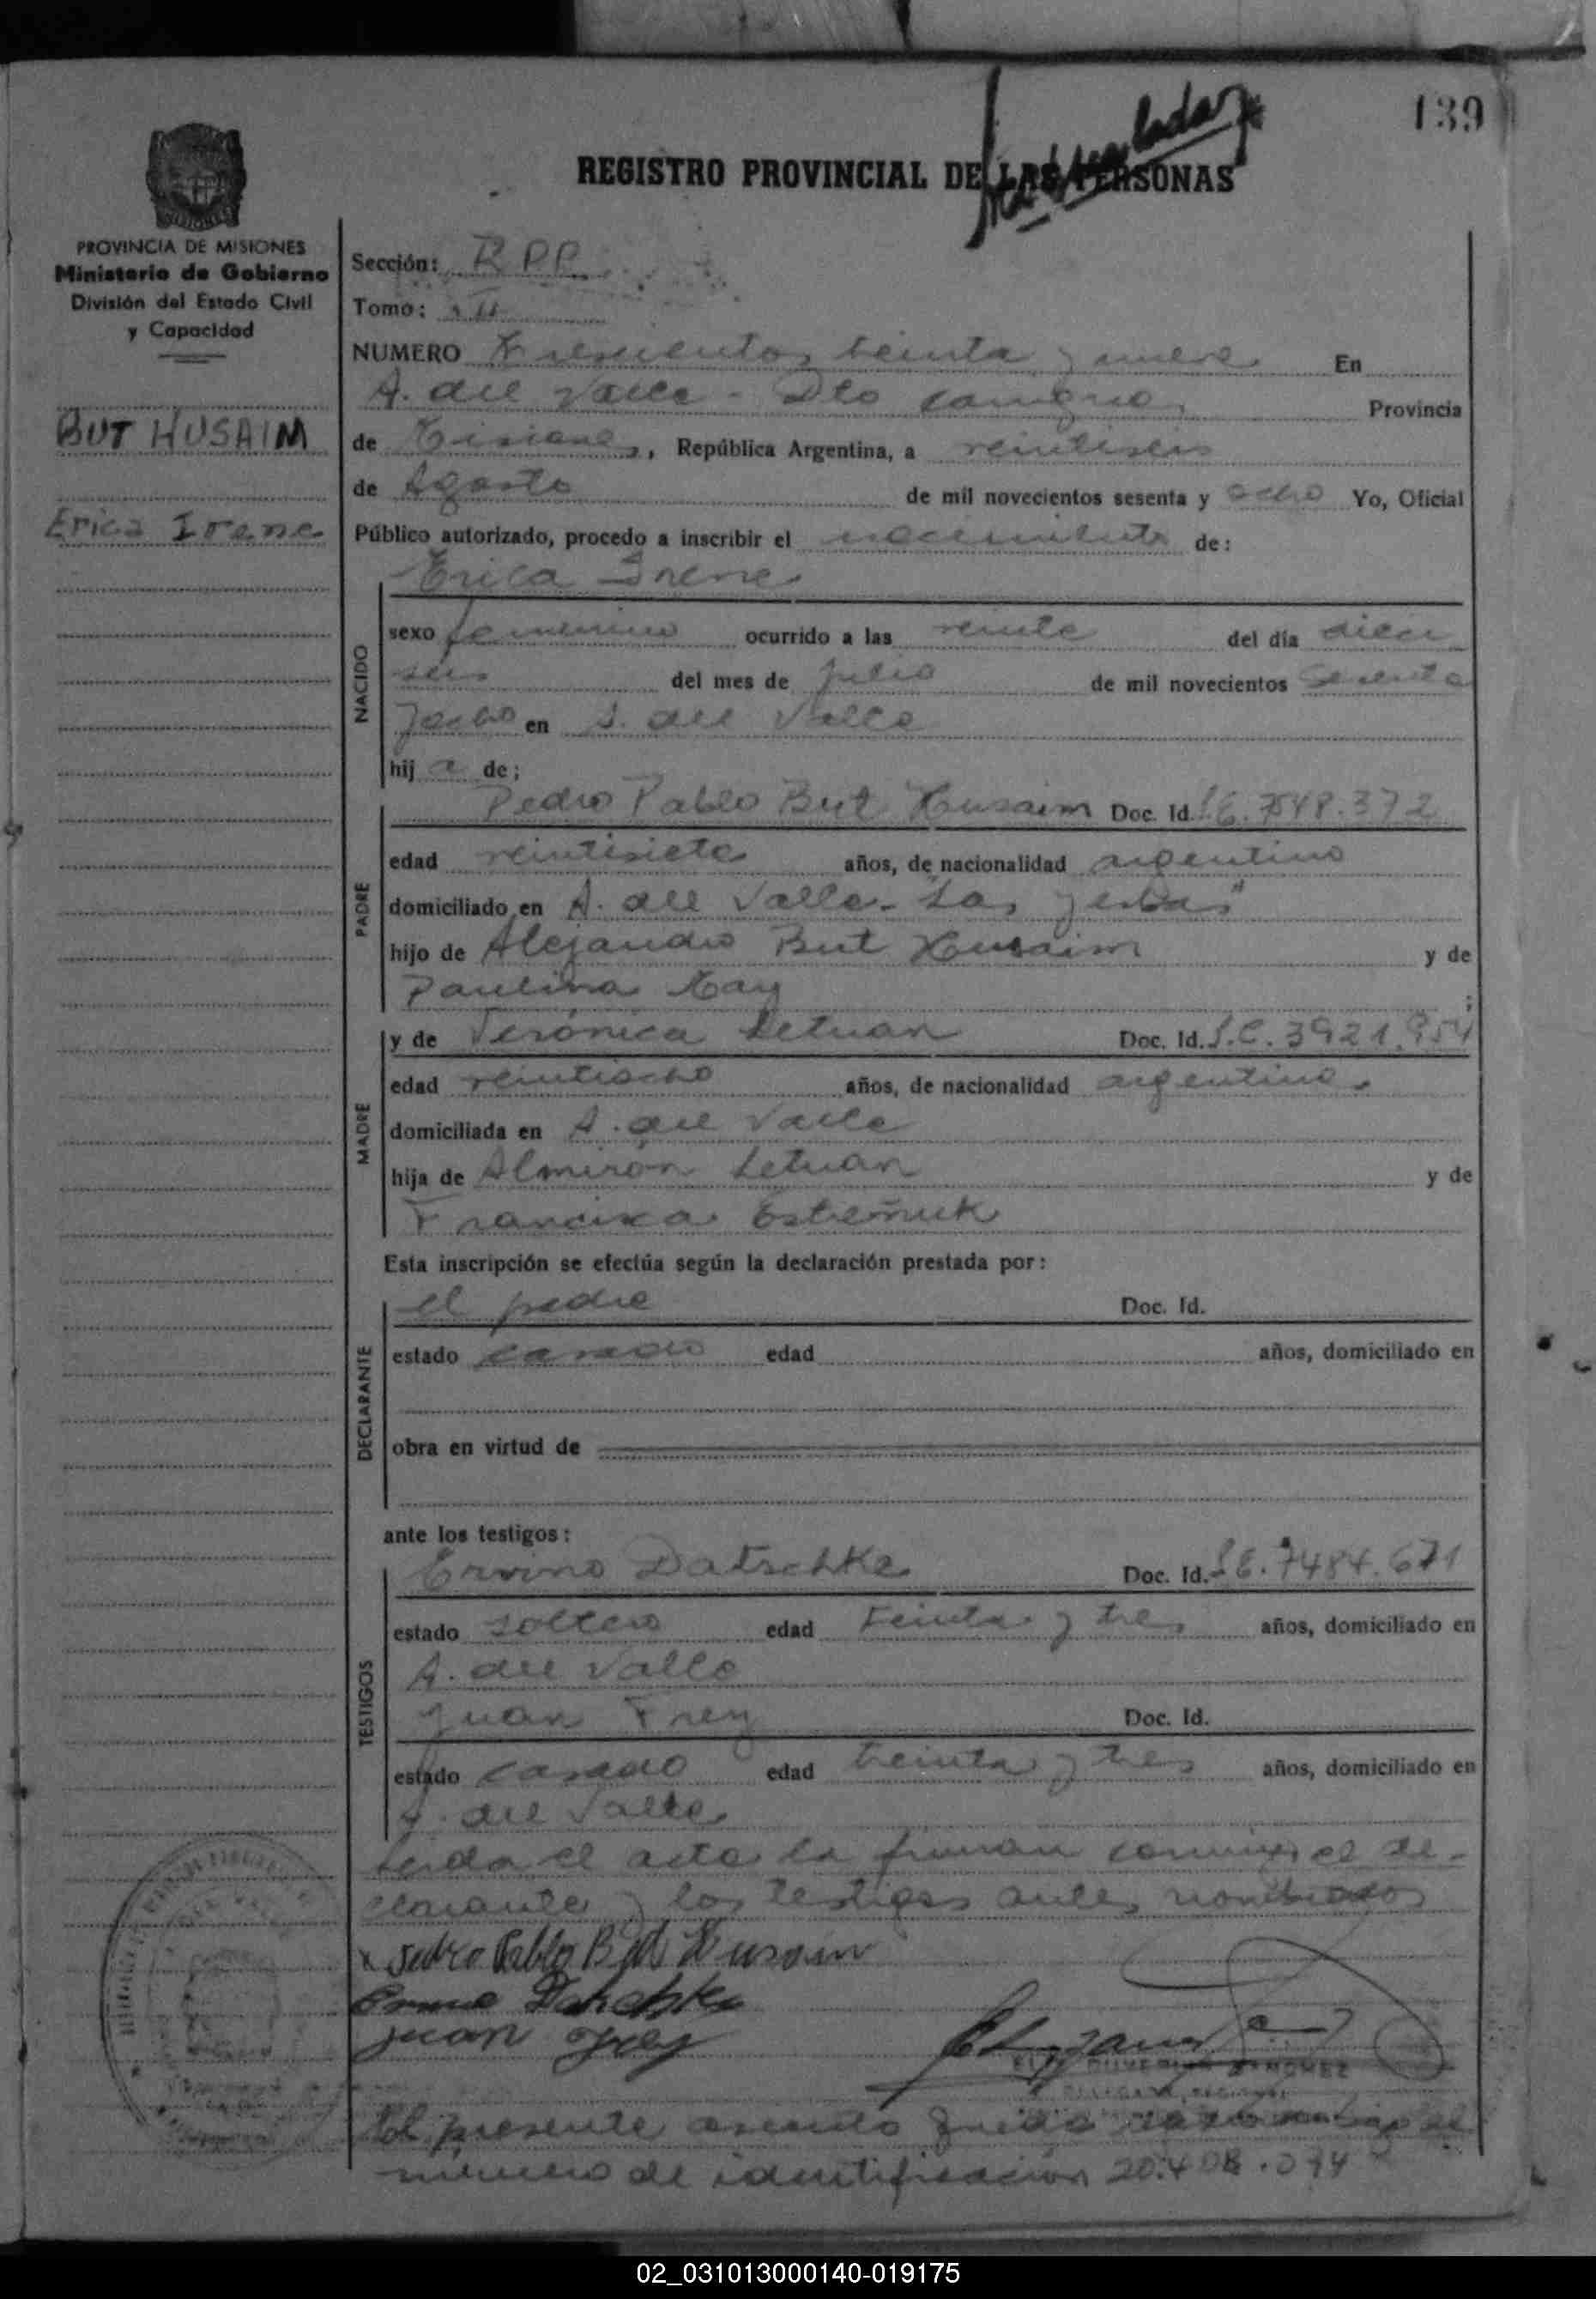 139
REGISTRO PROVINCIAL DE LAS PERSONAS
PROVINCIA DE MISIONES
Ministerio de Gobierno
División del Estado Civil
y Capacidad
BUT HUSAIM
Erica Irene
Sección: R P P
Tomo: II
NUMERO Trescientos treinta y nueve En
A. del Valle - Dto Cainguas Provincia
de Misiones, República Argentina, a veintiseis
de Agosto de mil novecientos sesenta y ocho Yo, Oficial
Público autorizado, procedo a inscribir el nacimiento de:
Erica Irene
NACIDO
sexo femenino ocurrido a las veinte del día dieci
seis del mes de julio de mil novecientos sesenta
y ocho en A. del Valle
hij a de;
PADRE
Pedro Pablo But Husaim Doc. Id. L.E. 7.548.372
edad veintisiete años, de nacionalidad argentino
domiciliado en A. del Valle - "Las Yerbas"
hijo de Alejandro But Husaim y de
Paulina ;
MADRE
y de Verónica Letuan Doc. Id. L.C. 3921.954
edad veintiocho años, de nacionalidad argentina
domiciliada en A. del Valle
hija de Almirón Letuan y de
Francisca Estreñuk
Esta inscripción se efectúa según la declaración prestada por:
DECLARANTE
el padre Doc. Id.
estado casado edad años, domiciliado en
obra en virtud de
ante los testigos:
TESTIGOS
Ervino Datschke Doc. Id. L.E. 7484.671
estado soltero edad treinta y tres años, domiciliado en
A. del Valle
Juan Frey Doc. Id.
estado casado edad treinta y tres años, domiciliado en
A. del Valle
Leida el acta la firman conmigo el de-
clarante y los testigos antes nombrados
x Pedro Pablo But Husaim
Datschke
Juan Frey
El presente asiento queda
número de identificación 20.408.074
02_031013000140-019175